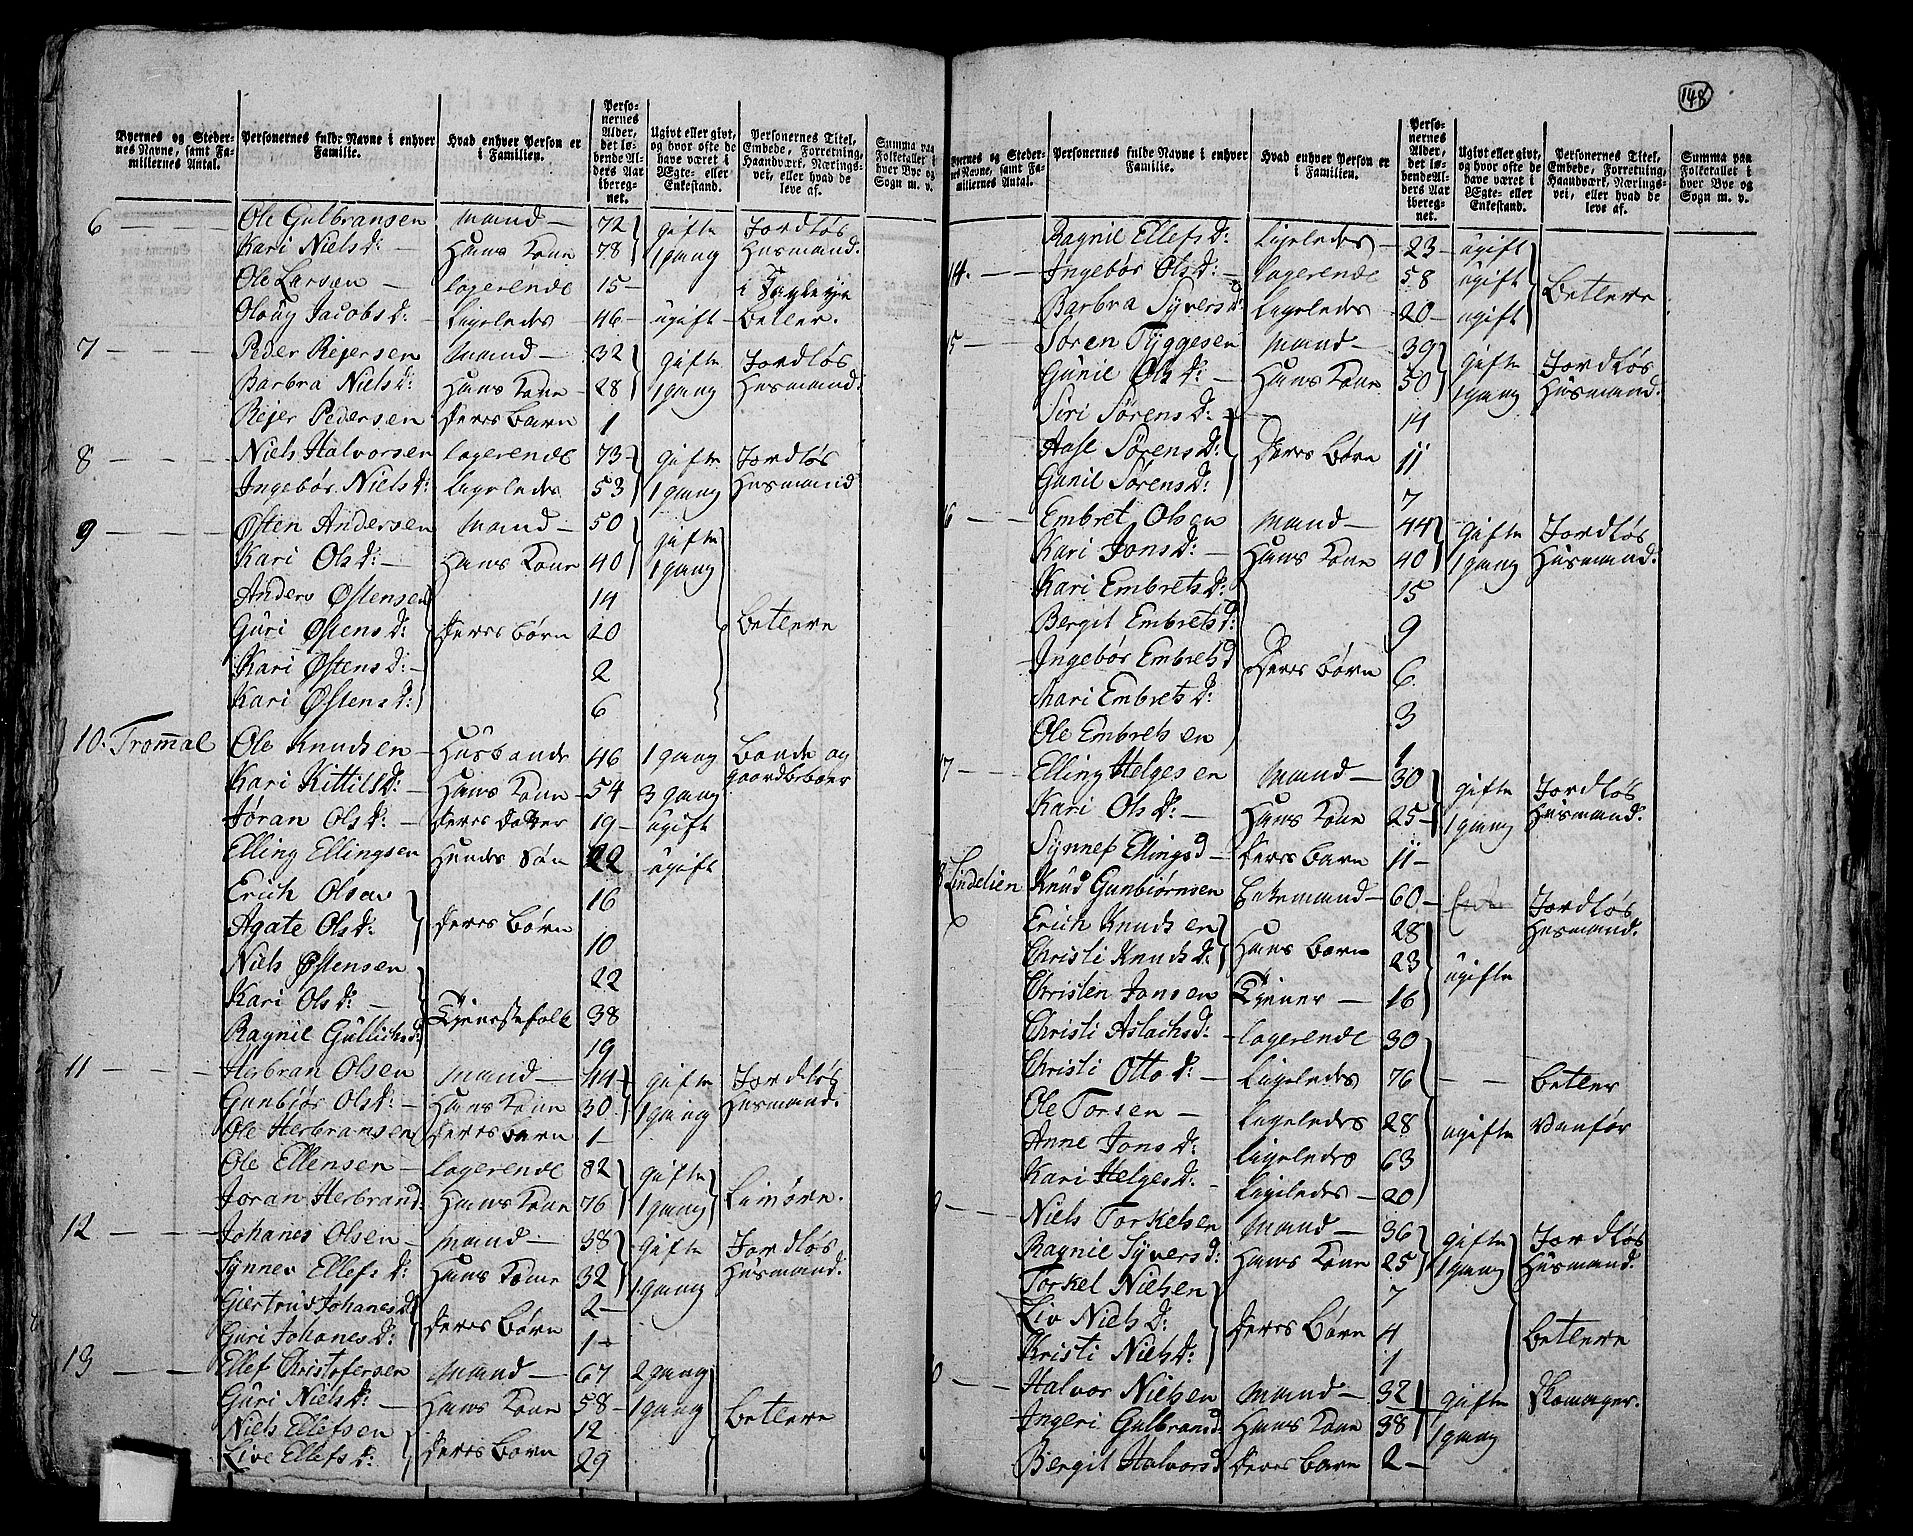 148
Byernes og Stedernes Navne, samt Familiernes Antal. | Personernes fulde Navne i enhver Familie. | Hvad enhver Person er i Familien. | Personernes Alder, det løbende Alders Aar iberegnet. | Ugivt eller givt, og hvor ofte de have været i Ægte- eller Enkestand. | Personernes Titel, Embede, Forretning, Haandværk, Næringsvei, eller hvad de leve af. | Summa paa Folketallet i hver Bye og Sogn m. v.
6 Ole Gulbransen Mand 72 gifte Jordløs
Kari Niels D: Hans Kone 78 1 gang Husmand.
Ole Larsen logerende 15
Oloug Jacobs D: ligeledes 46 ugift betler.
7 Peder Rejersen Mand 32 gifte Jordløs
Barbra Niels D: Hans Kone 28 1 gang Husmand.
Rejer Pedersen deres barn 1
8 Niels Halvorsen logerende 73 gifte Jordløs
Ingebør Niels D: ligeledes 53 1 gang Husmand
9 Østen Andersen Mand 50 gifte
Kari Ols D: Hans Kone 40 1 gang
Anders Østensen 14
Guri Østens D: deres børn 20 betlere
Kari Østens D: 2
Kari Østens D: 6
10. Trommal Ole Knudsen Husbonde 46 1 gang bonde og
Kari Kittils D: Hans Kone 54 3 gang gaardbeboer
Jøran Ols D: deres datter 19 ugift
Elling Ellingsen Hendes Søn 22 ugift
Erich Olsen 16
Agate Ols D: deres børn 10
Niels Østensen 22
Kari Ols D: Tjenestefolk 38
Ragnil Gullichs D: 19
11 Herbran Olsen Mand 44 gifte Jordløs
Gunbiør Ols D: Hans Kone 30 1 gang Husmand.
Ole Herbransen deres barn 1
Ole Ellensen logerende 82 gifte
Joran Herbrand: Hans Kone 76 1 gang
12 Johanes Olsen Mand 38 gifte Jordløs
Synnev Ellefs D: Hans Kone 32 1 gang Husmand.
Giertrud Johanes D 2
Guri Johanes D: deres børn 1
13 Ellef Christofersen Mand 67 2 gang
Guri Niels D: Hans Kone 58 1 gang betlere
Niels Ellefsen 12
Live Ellefs D: deres børn 29
Byernes og Stedernes Navne, samt Familiernes Antal. | Personernes fulde Navne i enhver Familie. | Hvad enhver Person er i Familien. | Personernes Alder, det løbende Alders Aar iberegnet. | Ugivt eller givt, og hvor ofte de have været i Ægte- eller Enkestand. | Personernes Titel, Embede, Forretning, Haandværk, Næringsvei, eller hvad de leve af. | Summa paa Folketallet i hver Bye og Sogn m. v.
Ragnil Ellefs D: ligeledes 23 ugift
14. Ingebør Ols D: logerende 58 ugift betlere
Barbra Syvers D: ligeledes 20 ugift
5 Søren Tyggesen Mand 39 gifte Jordløs
Gunil Ols D: Hans Kone 50 1 gang Husmand.
Siri Sørens D: 14
Aase Sørens D: deres børn 11
Gunil Sørens D: 7
6 Embret Olsen Mand 44 gifte Jordløs
Kari Jons D: Hans Kone 40 1 gang Husmand.
Kari Embrets D: 15
Bergit Embrets D: 9
Ingebør Embrets D deres børn 6
Mari Embrets D: 3
Ole Embretsen 1
7 Elling Helgesen Mand 30 gifte Jordløs
Kari Ols D: Hans Kone 25 1 gang Husmand.
Synnef Ellings D deres barn 11
8 Lindelien Knud Gunbiørnsen Enkemand 60 Jordløs
Erich Knudsen 28 Husmand.
Christi Knuds D: Hans børn 23 ugifte
Christen Jonsen Tjener 16
Christi Aslachs D: logerende 30
Christi Otto D: ligeledes 76 betler
Ole Torsen ligeledes 28 ugifte Vanfør
Anne Jons D: ligeledes 63
Kari Helges D: ligeledes 20
9 Niels Torkelsen Mand 36 gifte Jordløs
Ragnil Syvers D: Hans Kone 25 1 gang Husmand.
Torkel Nielsen 7
Liv Niels D: deres børn 4 betlere
Kristi Niels D: 1
0 Halvor Nielsen Mand 32 gifte Skomager.
Ingeri Gulbrans D Hans Kone 38 1 gang
Bergit Halvors D deres barn 2